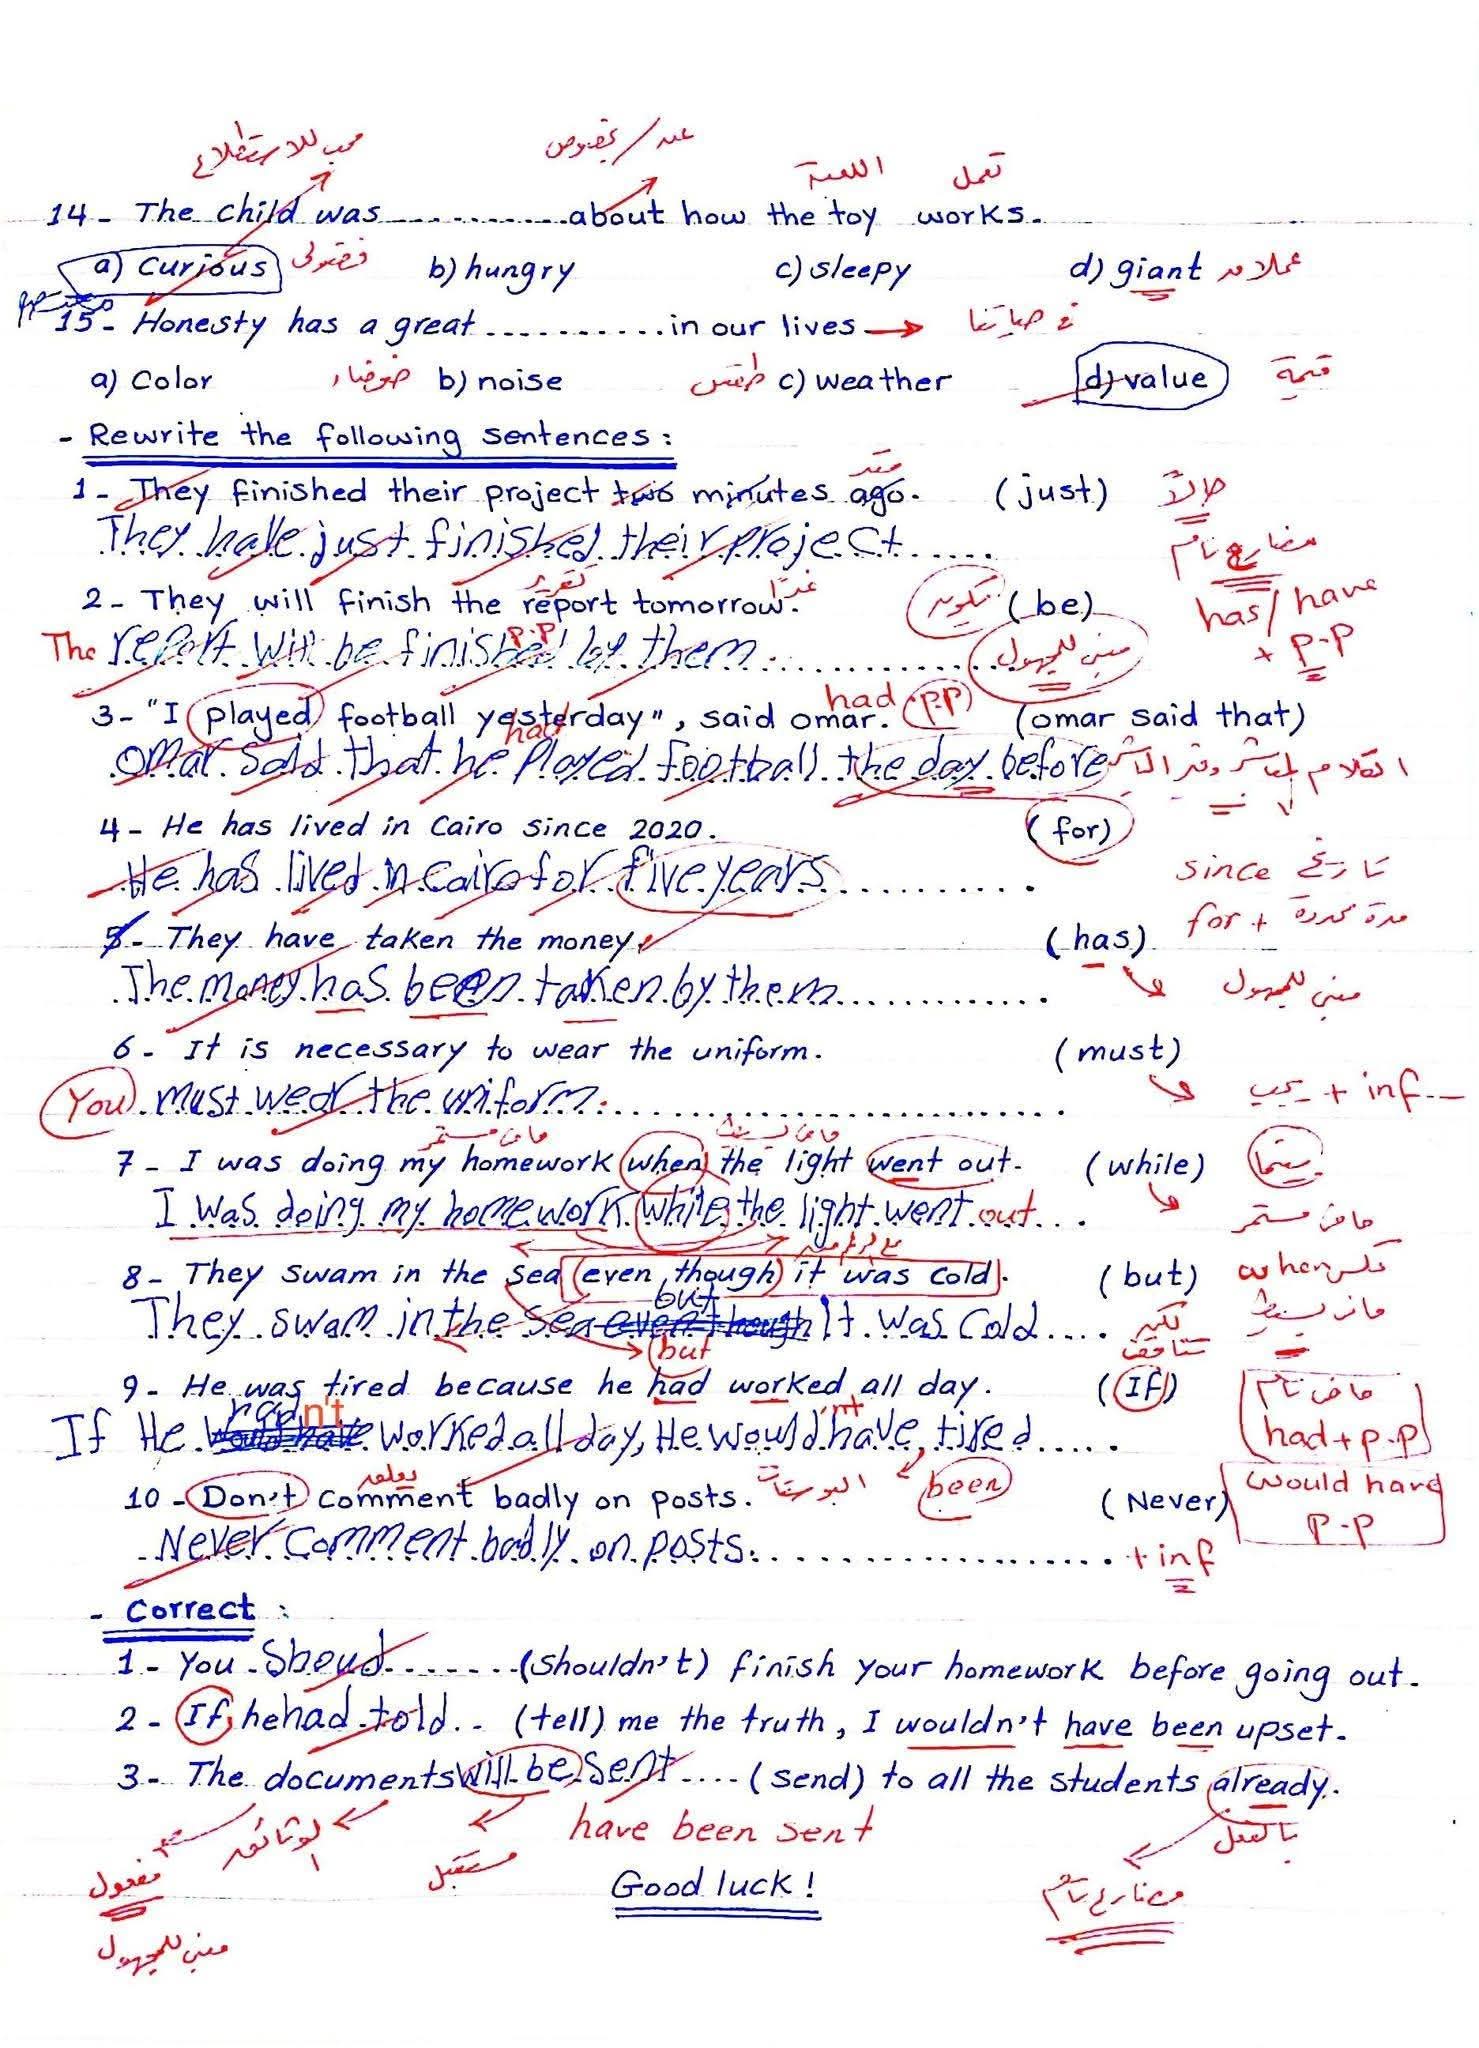 محب للاستطلاع عند/بخصوص اللعبة تعمل
14- The child was ............ about how the toy works.
a) Curious فضولى b) hungry c) sleepy d) giant عملاق
15- Honesty has a great .......... in our lives → فى حياتنا
a) Color ضوضاء b) noise طقس c) weather d) value قيمة
- Rewrite the following sentences:
منذ
1- They finished their project two minutes ago. (just) حالاً
They have just finished their project ..... مضارع تام
تقرير غداً
2- They will finish the report tomorrow. (be) تكون has/have
p.p + p.p
The report will be finished by them ............ مبنى للمجهول
had p.p
3- "I played football yesterday", said omar. (omar said that)
had
Omar said that he played football the day before
4- He has lived in Cairo since 2020. (for)
He has lived in Cairo for five years ........... since تاريخ
5- They have taken the money. (has) for + مدة محددة
The money has been taken by them ............ مبنى للمجهول
6- It is necessary to wear the uniform. (must)
You must wear the uniform ............ يجب + inf--
ماضى مستمر ماضى بسيط
7- I was doing my homework when the light went out. (while) بينما
I was doing my homework while the light went out... ماضى مستمر
على الرغم من
8- They swam in the sea even though it was cold. (but) when عكس
but
They swam in the sea even though It was cold .... لكن ماضى بسيط
but تناقض
9- He was tired because he had worked all day. (If) ماضى تام
hadn't n't had + p.p
If He would have worked all day, He would have tired .....
يعلق البوستات been would have
10- Don't comment badly on posts. (Never) p.p
Never comment badly on posts. ................ + inf
- Correct:
1- You Shoud ....... (shouldn't) finish your homework before going out.
2- If he had told .. (tell) me the truth, I wouldn't have been upset.
3- The documents will be sent .... (send) to all the students already.
الوثائق have been sent بالفعل
مفعول مستقبل Good luck! مضارع تام
مبنى للمجهول